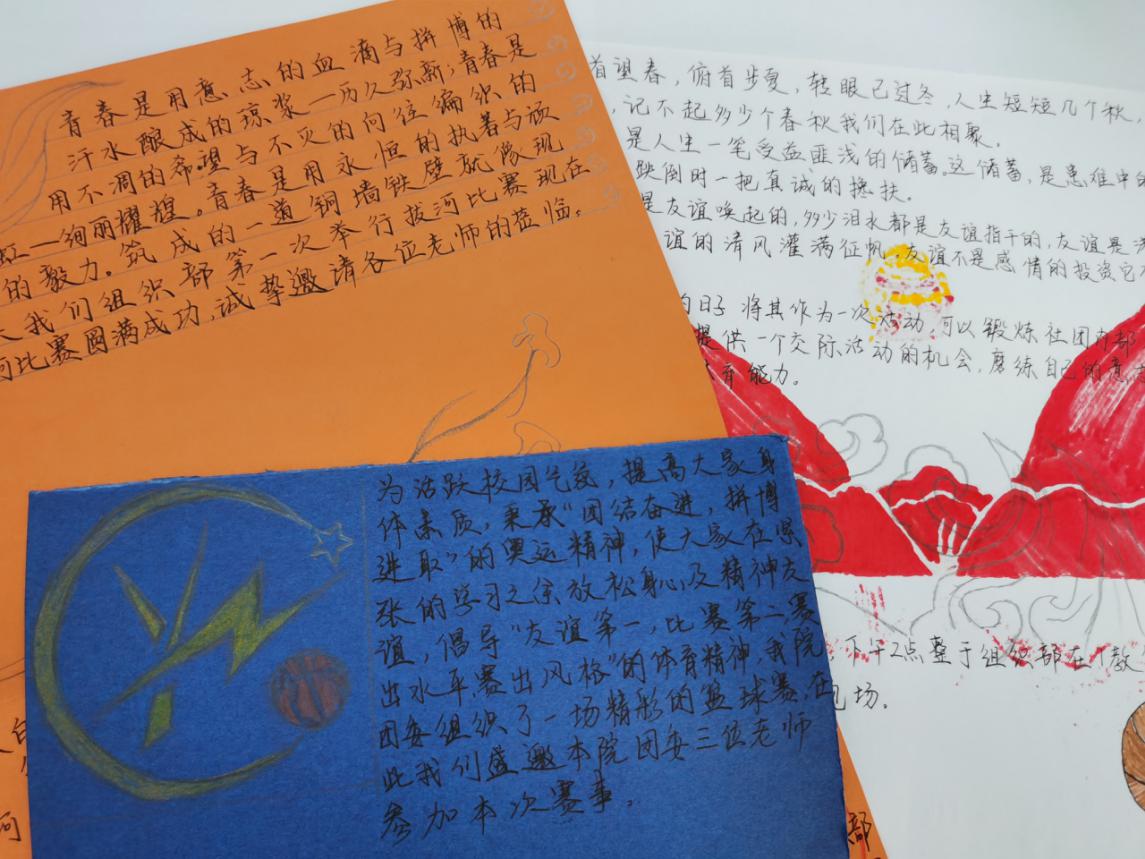 青春是用意志的血滴与拼博的
汗水酿成的琼浆一历久弥新;青春是
用不凋的希望与不灭的向往编织的
虹一绚丽耀煌。青春是用永恒的执著与顽
的毅力。筑成的一道铜墙铁壁就像现
我们组织部第一次举行拔河比赛现在
河比赛圆满成功,诚挚邀请各位老师的莅临。
首望春,俯首步夏,转眼已过冬,人生短短几个秋,
,记不起多少个春秋我们在此相聚。
是人生一笔受益匪浅的储蓄。这储蓄,是患难中的
跌倒时一把真诚的搀扶。
是友谊唤起的,多少泪水都是友谊指干的,友谊是
谊的清风灌满征帆。友谊不是感情的投资它
的日子 将其作为一次活动,可以锻炼社团内部
提供一个交际活动的机会,磨练自己的意志
能力。
,下午2点整于组织部在1教
现场。
为活跃校园气氛,提高大家身
体素质,秉承“团结奋进,拼博
进取”的奥运精神,使大家在紧
张的学习之余放松身心,及精神友
谊,倡导“友谊第一,比赛第二,赛
出水平,赛出风格”的体育精神,我院
团委组织了一场精彤的篮球赛,在
此我们盛邀本院团委三位老师
参加本次赛事。
河
部